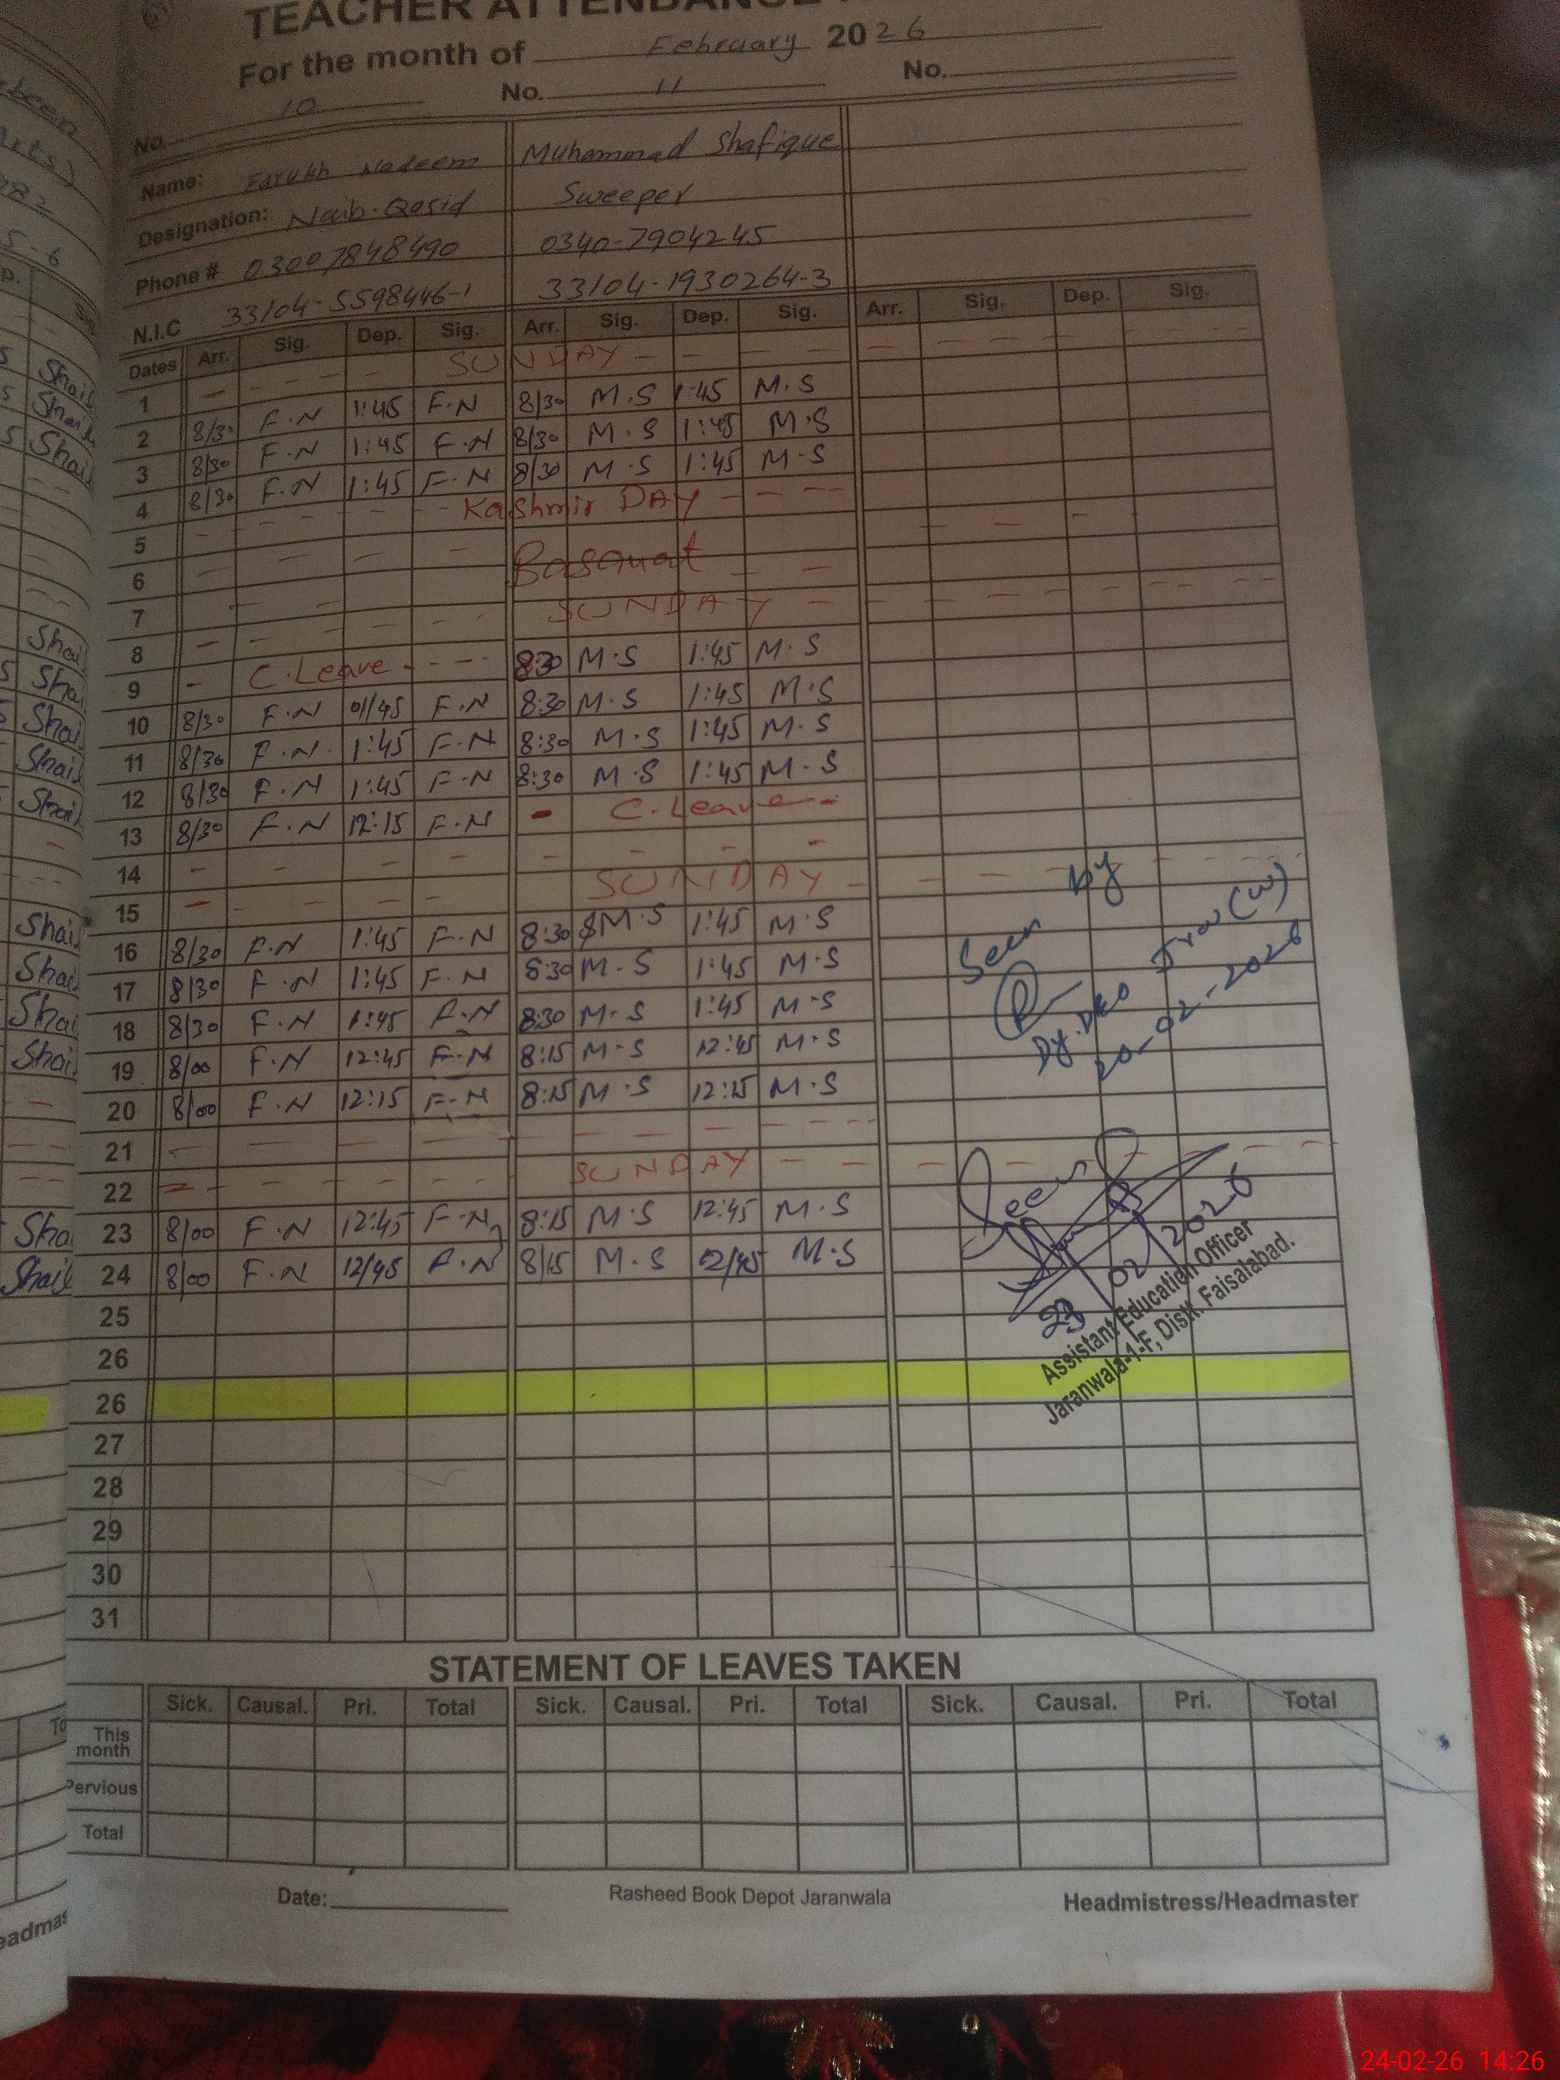 TEACHER ATTENDANCE
For the month of February 2026
No. 10 No. 11 No.
Name: Farukh Nadeem Muhammad Shafique
Designation: Naib-Qasid Sweeper
Phone # 03007848490 0340-7904245
N.I.C 33104-5598446-1 33104-1930264-3
Dates Arr. Sig. Dep. Sig. Arr. Sig. Dep. Sig. Arr. Sig. Dep. Sig.
1 SUNDAY
2 8/30 F.N 1:45 F.N 8/30 M.S 1:45 M.S
3 8/30 F.N 1:45 F.N 8/30 M.S 1:45 M.S
4 8/30 F.N 1:45 F.N 8/30 M.S 1:45 M.S
5 Kashmir DAY
6 Basant
7
8 SUNDAY
9 C.Leave 8:30 M.S 1:45 M.S
10 8/30 F.N 01/45 F.N 8:30 M.S 1:45 M.S
11 8/30 F.N 1:45 F.N 8:30 M.S 1:45 M.S
12 8/30 F.N 1:45 F.N 8:30 M.S 1:45 M.S
13 8/30 F.N 12:15 F.N C.Leave
14
15 SUNDAY
16 8/30 F.N 1:45 F.N 8:30 M.S 1:45 M.S
17 8/30 F.N 1:45 F.N 8:30 M.S 1:45 M.S
18 8/30 F.N 1:45 F.N 8:30 M.S 1:45 M.S
19 8/00 F.N 12:45 F.N 8:15 M.S 12:45 M.S
20 8/00 F.N 12:15 F.N 8:15 M.S 12:15 M.S
21
22 SUNDAY
23 8/00 F.N 12:45 F.N 8:15 M.S 12:45 M.S
24 8/00 F.N 12/45 F.N 8/15 M.S 12/45 M.S
25
26
26
27
28
29
30
31
Seen by
Dy. DEO Jrw (W)
20-02-2026
Seen
23/02/2026
Assistant Education Officer
Jaranwala-1-F, Distt. Faisalabad.
STATEMENT OF LEAVES TAKEN
Sick. Causal. Pri. Total Sick. Causal. Pri. Total Sick. Causal. Pri. Total
This month
Pervious
Total
Date: Rasheed Book Depot Jaranwala Headmistress/Headmaster
24-02-26 14:26